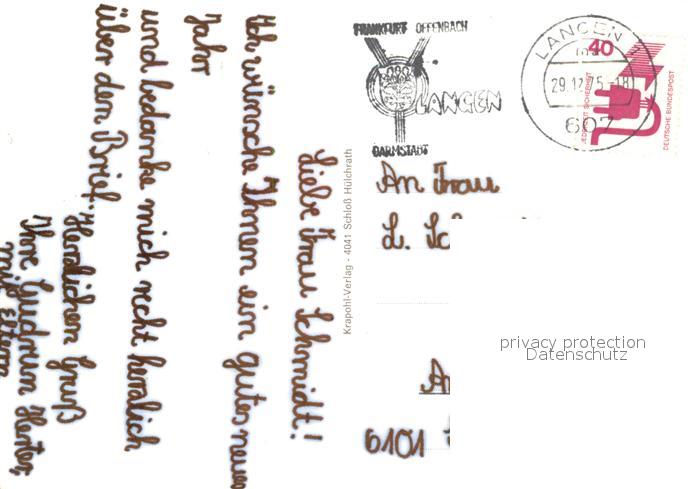 Liebe Frau Schmidt!
Ich wünsche Ihnen ein gutes neues
Jahr
und bedanke mich recht herzlich
über den Brief.
Herzlichen Gruß
Ihre Gudrun Herter,
mit Eltern
Krapohl-Verlag - 4041 Schloß Hülchrath
FRANKFURT OFFENBACH
LANGEN
DARMSTADT
LANGEN
29.12.75-18
607
40
JEDERZEIT SICHERHEIT
DEUTSCHE BUNDESPOST
An Frau
L. Sc
6101
privacy protection
Datenschutz